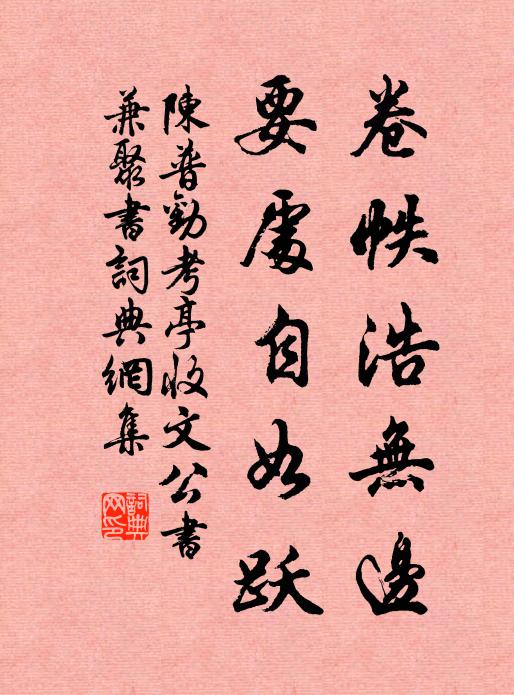 卷帙浩無邊
要處自如躍
陳普勸考亭收文公書
兼聚書詞典網集
詞典網印